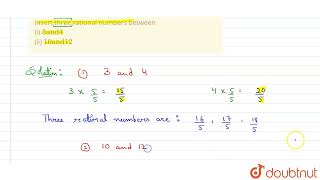 Insert three rational numbers between
(i) 3and4
(ii) 10and12
Solution: ① 3 and 4
3 × 5/5 = 15/5 4 × 5/5 = 20/5
Three rational numbers are : 16/5 , 17/5 , 18/5
② 10 and 12
doubtnut